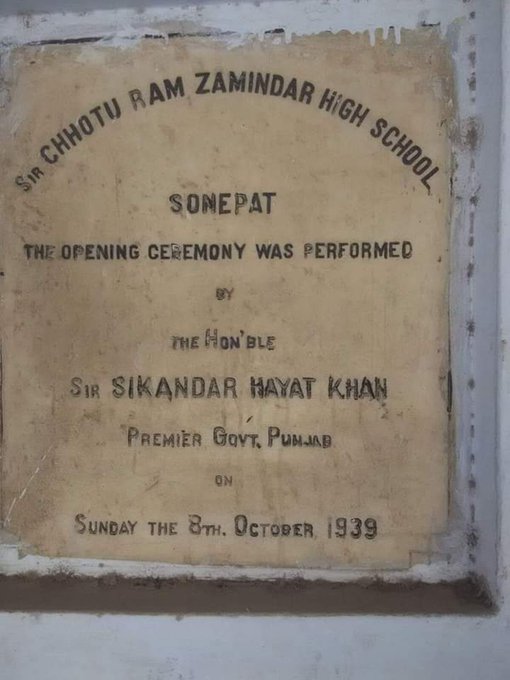 Sir CHHOTU RAM ZAMINDAR HIGH SCHOOL
SONEPAT
THE OPENING CEREMONY WAS PERFORMED
BY
THE HON'BLE
SIR SIKANDAR HAYAT KHAN
PREMIER GOVT. PUNJAB
ON
SUNDAY THE 8TH. OCTOBER 1939